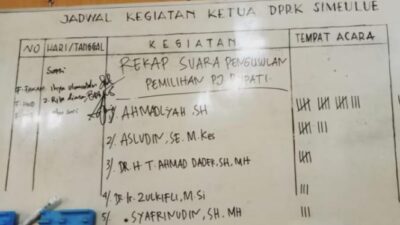 JADWAL KEGIATAN KETUA DPRK SIMEULUE
NO HARI/TANGGAL KEGIATAN TEMPAT ACARA
REKAP SUARA PENGUSULAN
PEMILIHAN PJ BUPATI.
1/. AHMADLYAH, SH
2/. ASLUDIN, SE. M. Kes
3/. DR. H. T. AHMAD DADEK, SH, MH
4/. Dr. Ir. ZULKIFLI, M. Si
5/. SYAFRINUDIN, SH. MH